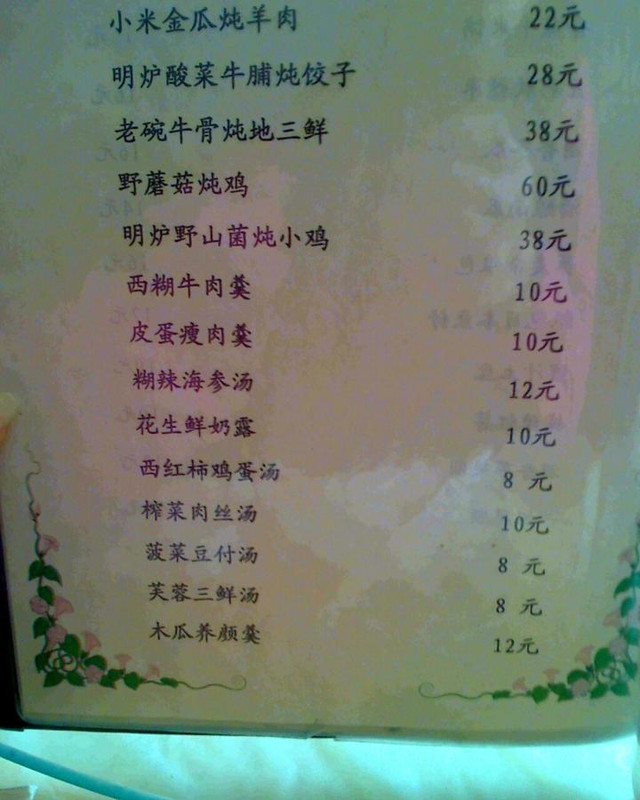 小米金瓜炖羊肉 22元
明炉酸菜牛脯炖饺子 28元
老碗牛骨炖地三鲜 38元
野蘑菇炖鸡 60元
明炉野山菌炖小鸡 38元
西糊牛肉羹 10元
皮蛋瘦肉羹 10元
糊辣海参汤 12元
花生鲜奶露 10元
西红柿鸡蛋汤 8元
榨菜肉丝汤 10元
菠菜豆付汤 8元
芙蓉三鲜汤 8元
木瓜养颜羹 12元